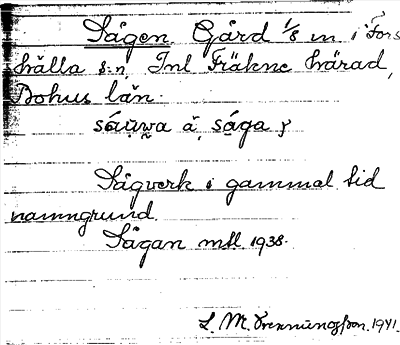 Sågen. Gård 1/8 m i Fors
hälla s:n, Inl Fräkne härad,
Bohus län.
såu̯w̯a å, såga ɟ
Sågverk i gammal tid
namngrund.
Sågan msl. 1938.
L. M. 1941.